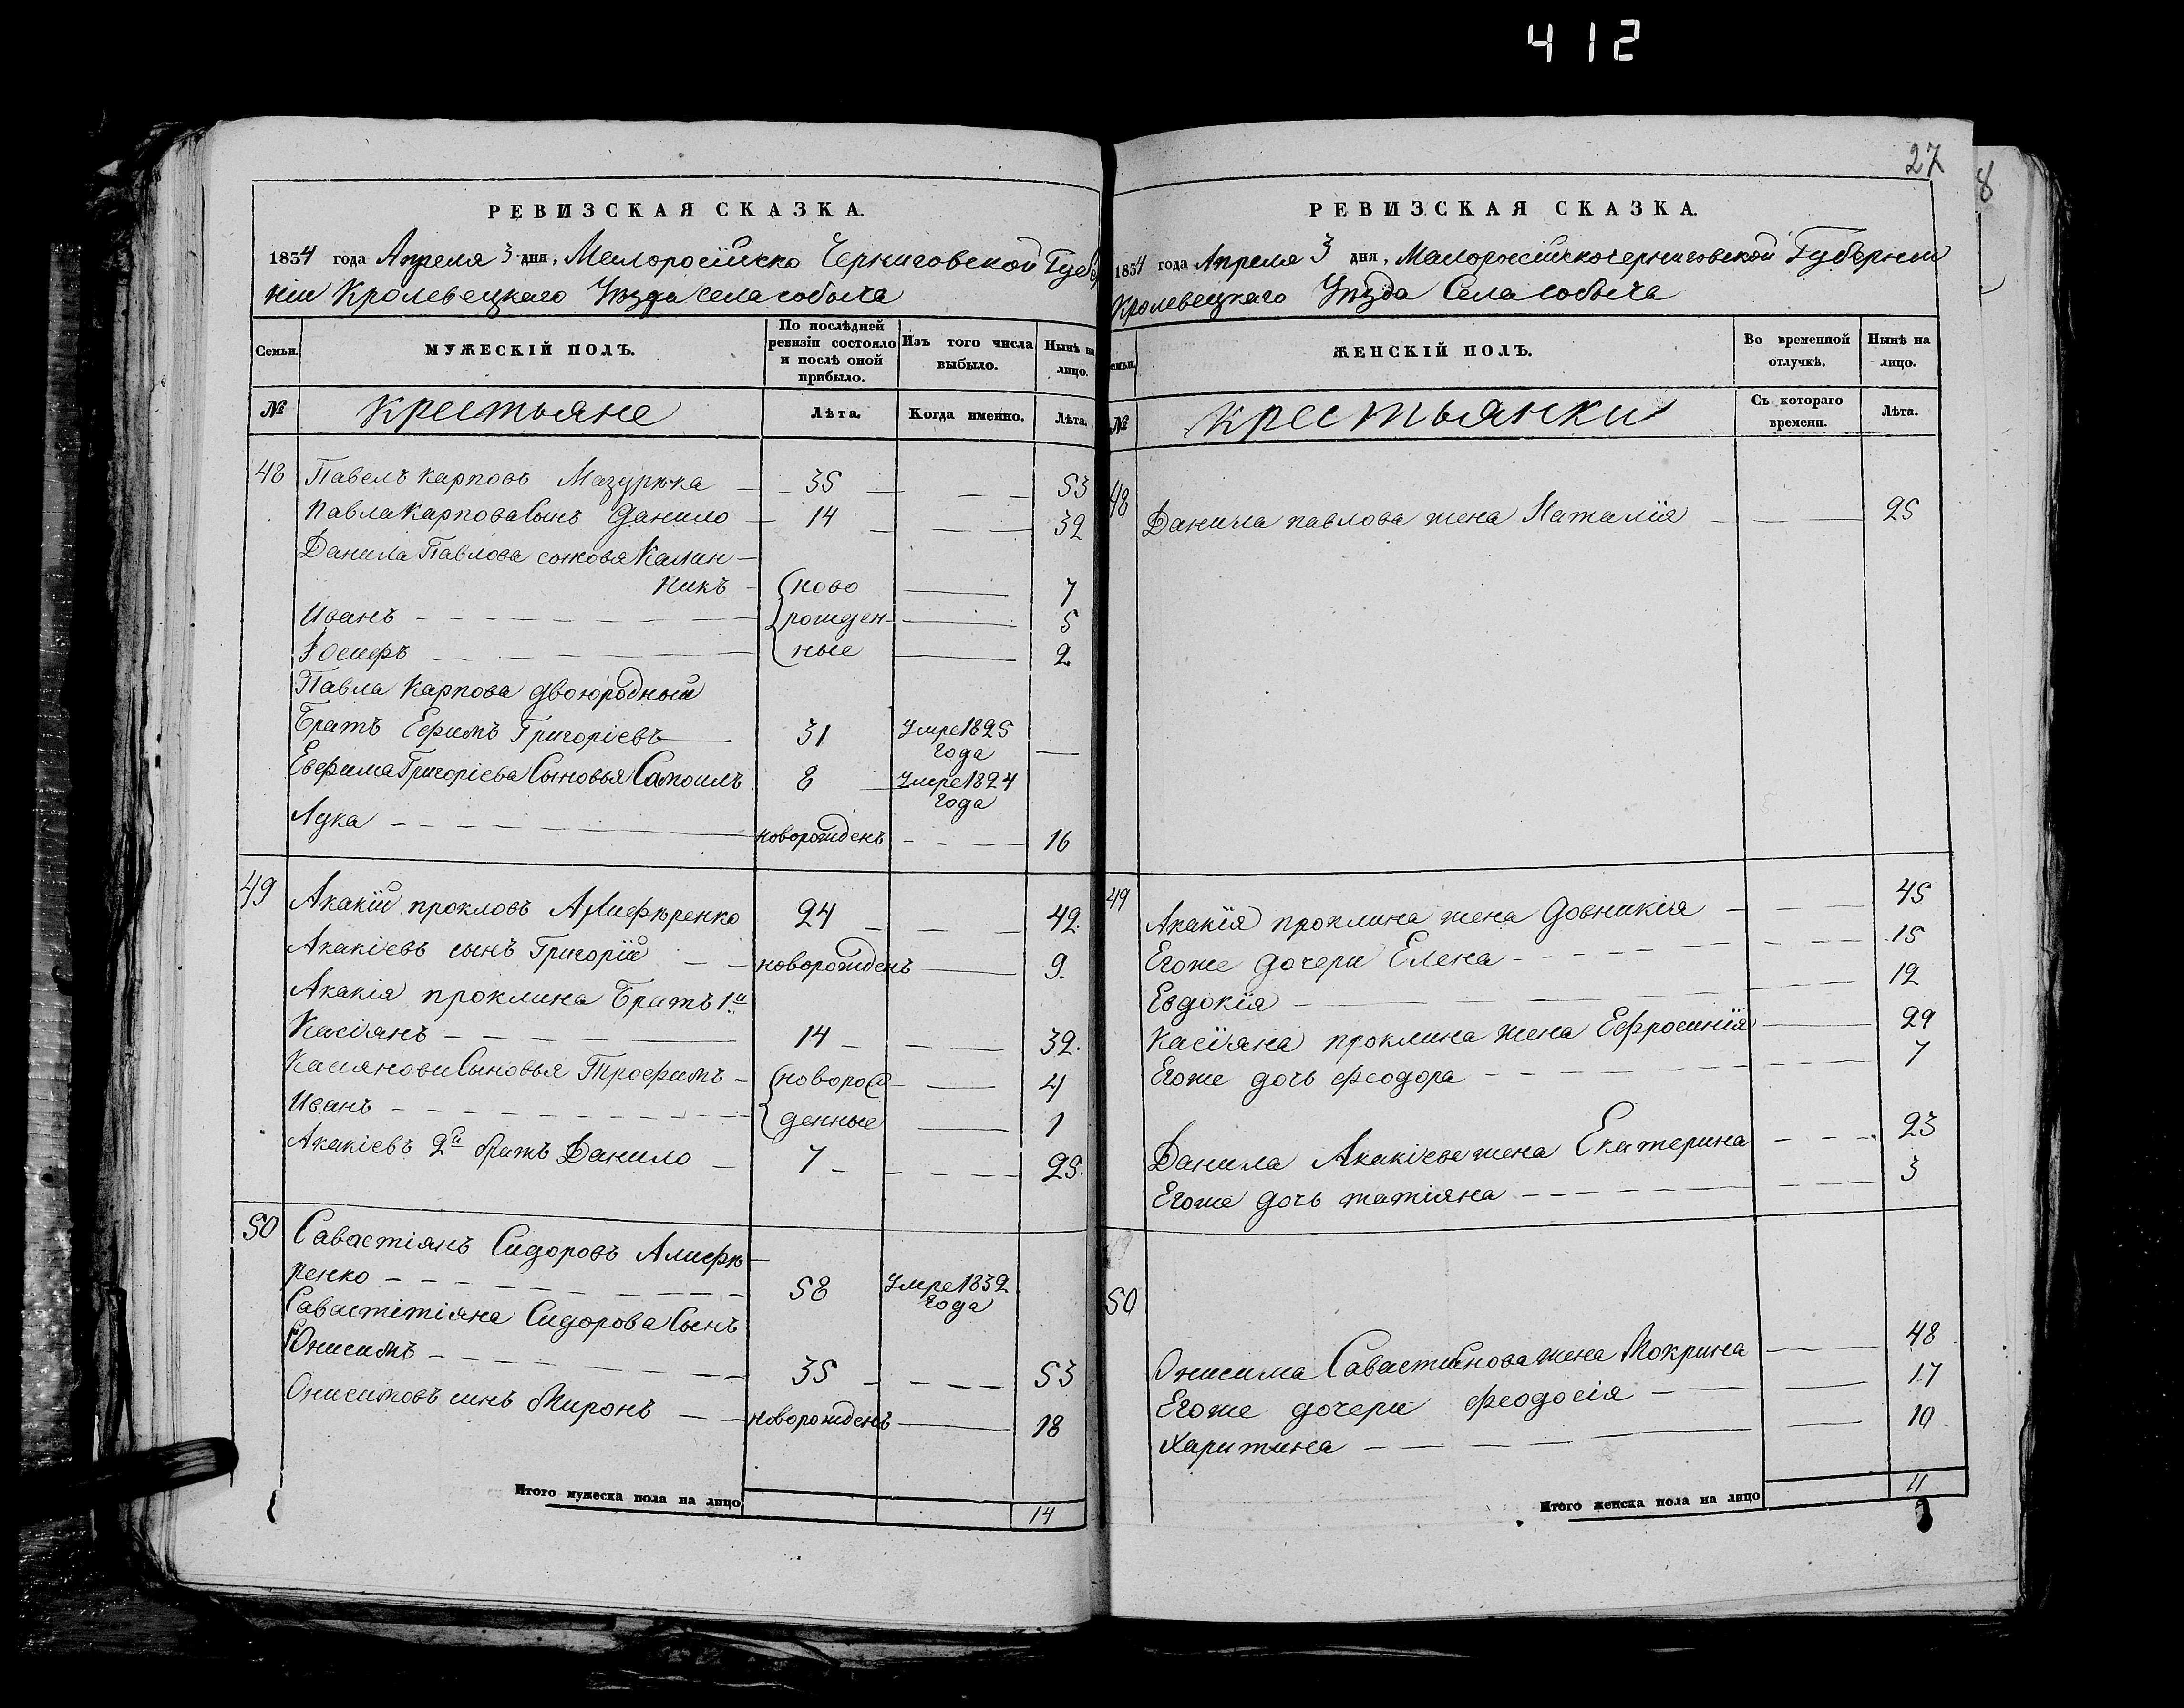 412
27
8
РЕВИЗСКАЯ СКАЗКА.
1834 года Апреля 3 дня, Малоросійско Черниговской Губер
ніи Кролевецкаго Уѣзда села собыча
Семьи. МУЖЕСКІЙ ПОЛЪ. По послѣдней ревизіи состояло и послѣ оной прибыло. Изъ того числа выбыло. Нынѣ на лицо.
№ крестьяне Лѣта. Когда именно. Лѣта.
48 Павелъ карповъ Мазурюка 35 53
Павла Карпова Сынъ Данило 14 32
Данила Павлова сыновя Калин
никъ ново 7
Иванъ рожден 5
Іосифъ ные 2
Павла Карпова двоюродный
Братъ Ефимъ Григоріевъ 31 Умре 1825 года
Евфима Григоріева Сыновья Самоилъ 8 Умре 1824 года
Лука новорожденъ 16
49 Акакій прокловъ Алифѣренко 24 42.
Акакіевъ сынъ Григорій новорожденъ 9.
Акакія проклина Братъ 1й
Касіянъ 14 32.
Касиянови Сыновья Трофимъ новорож 4
Иванъ денные 1
Акакіевъ 2й братъ Данило 7 25.
50 Савастіянъ Сидоровъ Алифѣ
ренко 58 Умре 1832 года
Савастітіяна Сидорова Сынъ
Онисимъ 35 53
Онисимовъ синъ Миронъ новорожденъ 18
Итого мужеска пола на лицо 14
РЕВИЗСКАЯ СКАЗКА.
1834 года Апреля 3 дня, Малороссійскочерниговской Губернии
Кролевецкаго Уѣзда Села собыча
емьи. ЖЕНСКІЙ ПОЛЪ. Во временной отлучкѣ. Нынѣ на лицо.
№ крестьянки Съ котораго времени. Лѣта.
48 Данила павлова жена Наталія 25
49 Акакія проклина жена Довникія 45
Егоже дочери Елена 15
Евдокія 12
Касіяна проклина жена Ефросинія 29
Егоже дочь феодора 7
Данила Акакіева жена Екатерина 23
Егоже дочь татіяна 3
50
Онисима Савастиянова жена Мокрина 48
Егоже дочери феодосія 17
Харитина 10
Итого женска пола на лицо 11